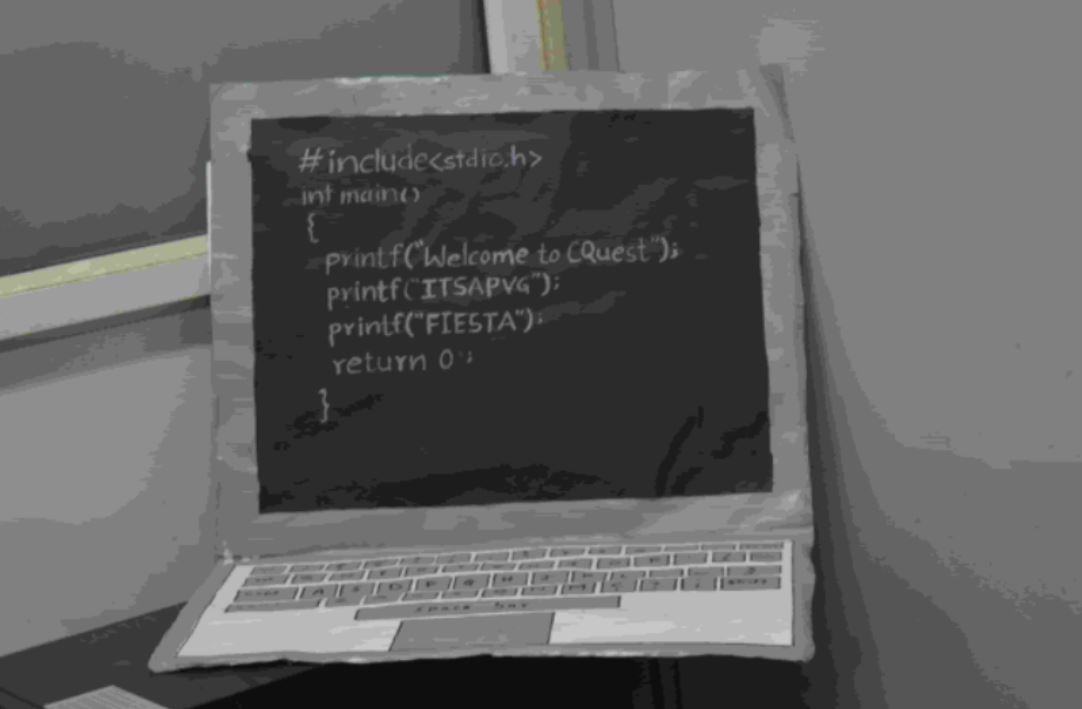 #include<stdio.h>
int main()
{
printf("Welcome to CQuest");
printf("ITSAPVG");
printf("FIESTA");
return 0;
}
space bar